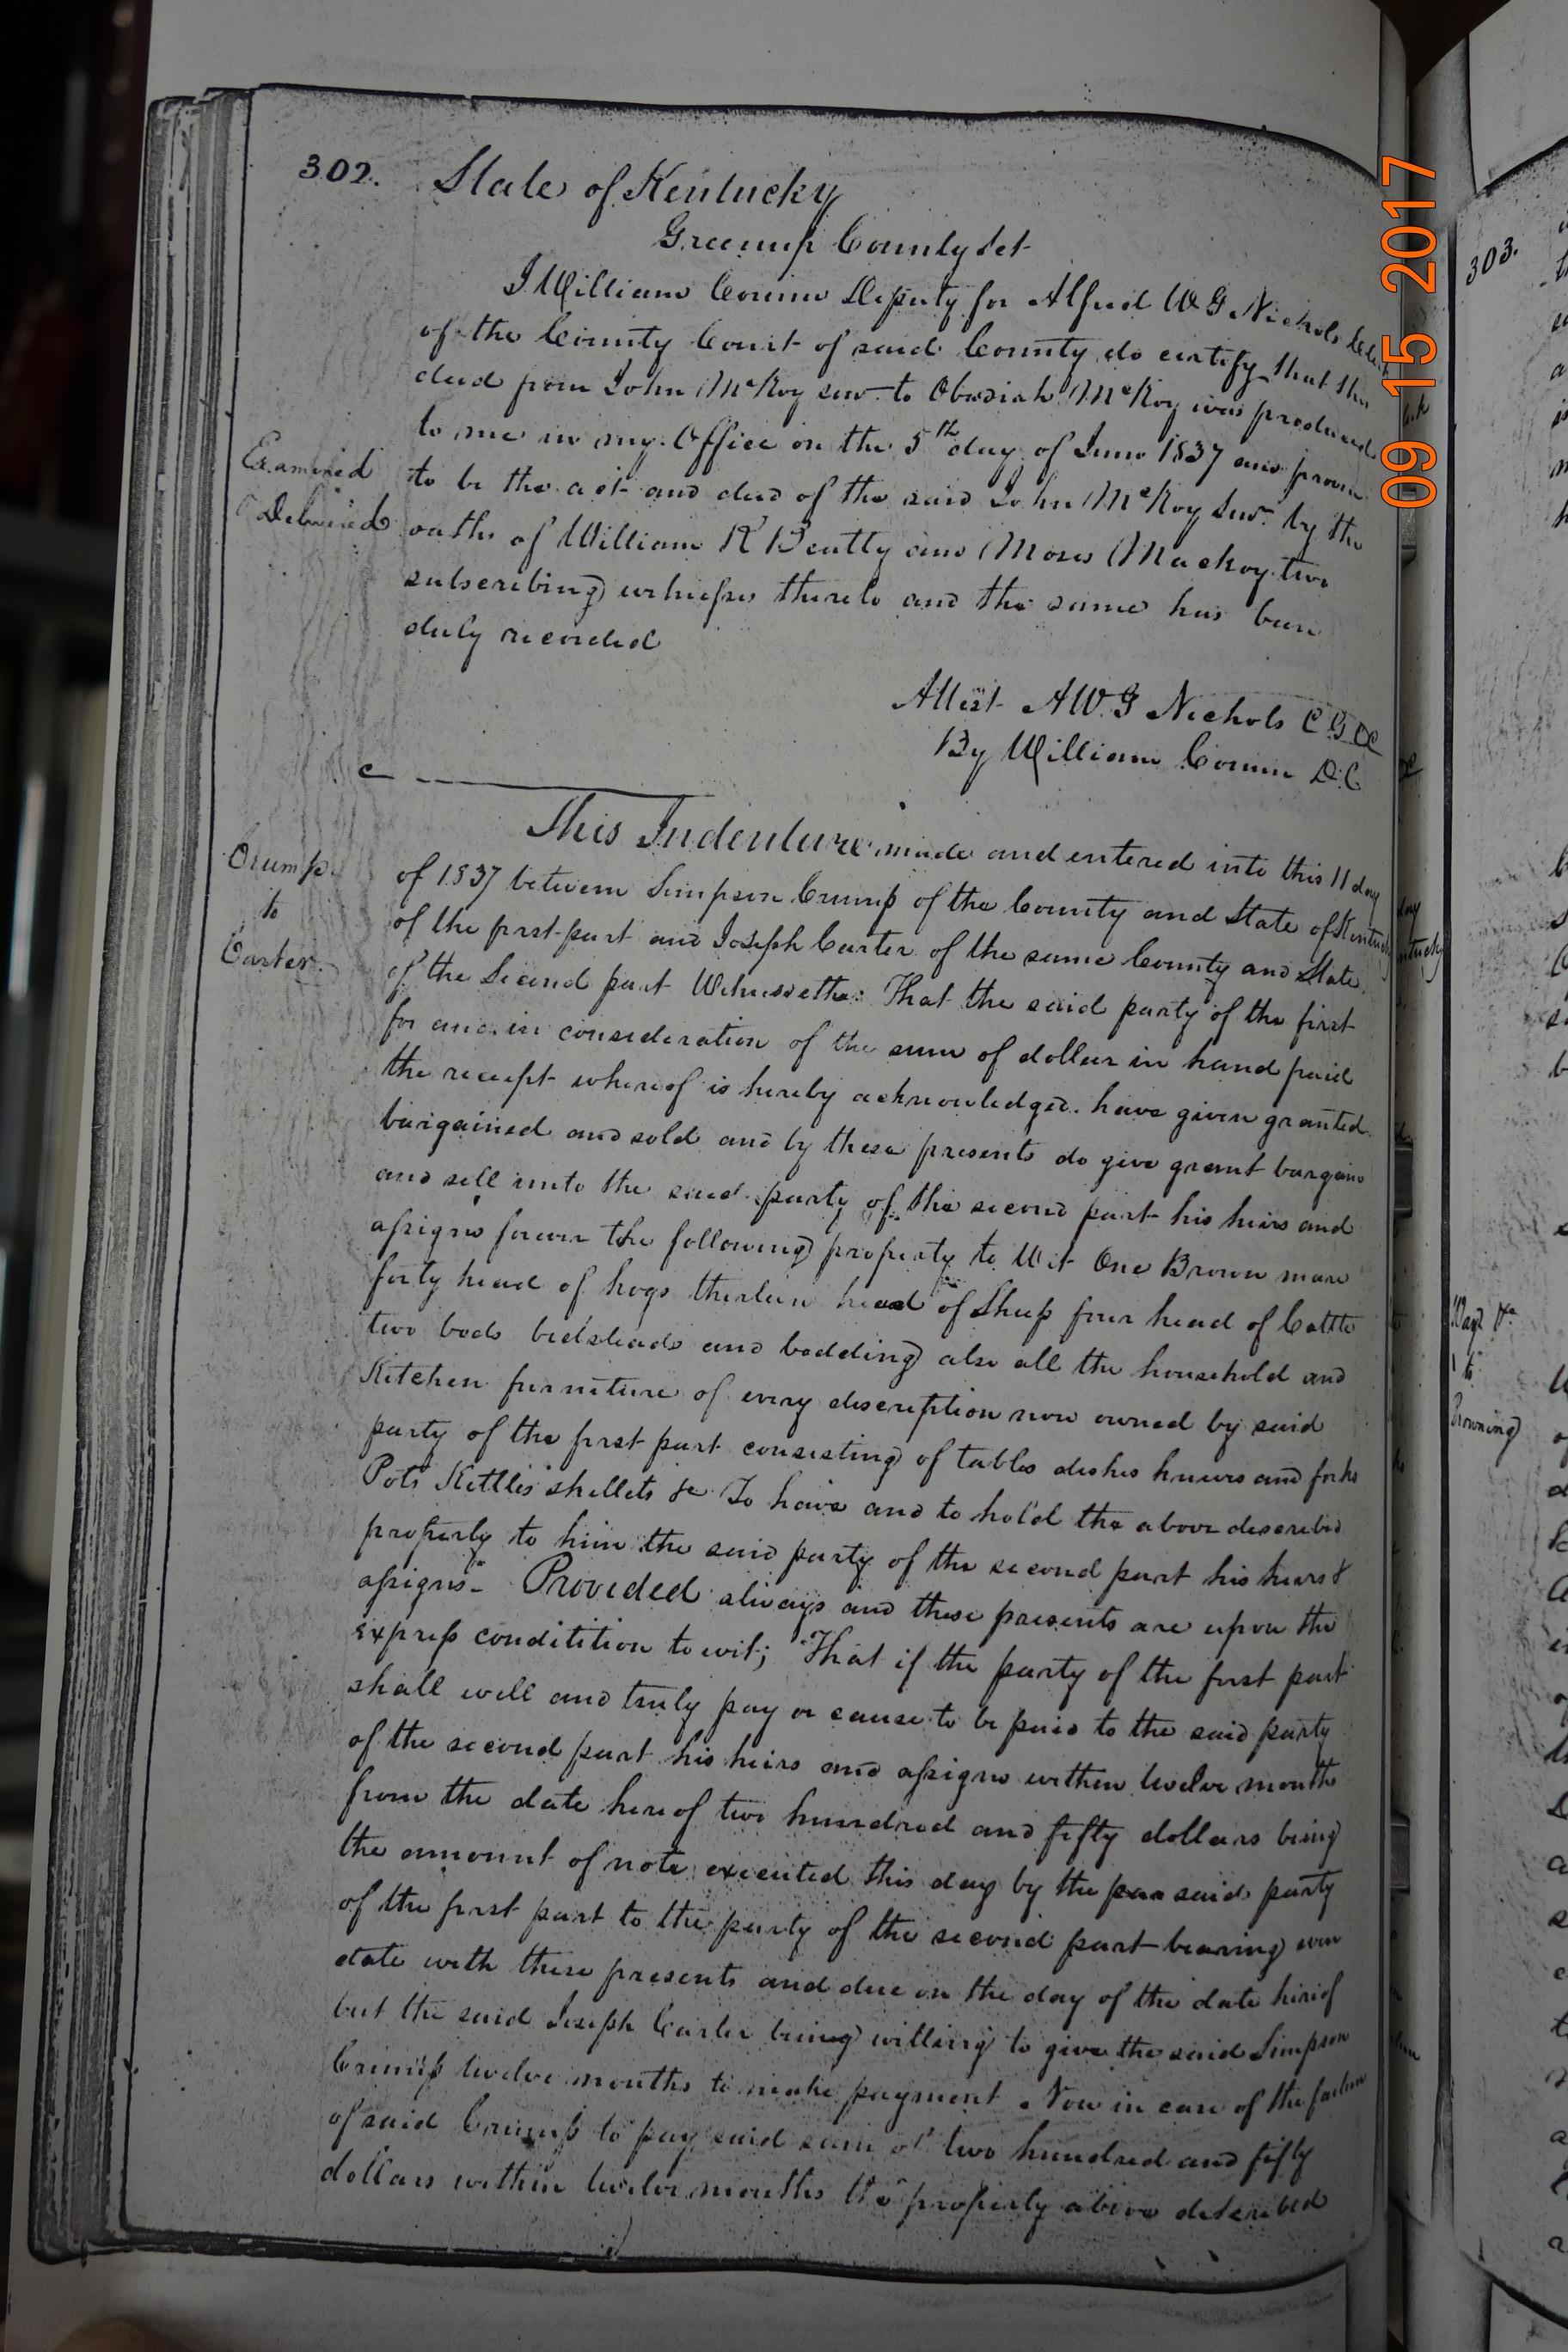 302.
State of Kentucky
Greenup County Sct
I William Corum Deputy for Alfred W G Nichols Clerk
of the County Court of said County do certify that this
deed from John McKoy senr to Obadiah McKoy was produced
to me in my Office on the 5th day of June 1837 and proven
to be the act and deed of the said John McKoy Senr by the
oaths of William R Beatty and Moses Mackoy two
subscribing witnesses thereto and the same has been
duly recorded
Examined
& Delivered
Attest A W. G Nichols C G C C
By William Corum D.C.
Crump
to
Carter
This Indenture made and entered into this 11 day
of 1837 between Simpson Crump of the County and State of Kentucky
of the first part and Joseph Carter of the same County and State
of the Second part Witnesseth: That the said party of the first
for and in consideration of the sum of dollar in hand paid
the receipt whereof is hereby acknowledged. have given granted
bargained and sold and by these presents do give grant bargain
and sell unto the said party of the second part his heirs and
assigns forever the following property to Wit One Brown mare
forty head of hogs thirteen head of Sheep four head of Cattle
two beds bedsteads and bedding also all the household and
Kitchen furniture of every description now owned by said
party of the first part consisting of tables dishes knives and forks
Pots Kettles skellets &c To have and to hold the above described
property to him the said party of the second part his heirs &
assigns- Provided always and these presents are upon the
express conditition to wit; That if the party of the first part
shall well and truly pay or cause to be paid to the said party
of the second part his heirs and assigns within twelve months
from the date hereof two hundred and fifty dollars being
the amount of note executed this day by the said party
of the first part to the party of the second part bearing even
date with these presents and due on the day of the date hereof
but the said Joseph Carter being willing to give the said Simpson
Crump twelve months to make payment Now in case of the failure
of said Crump to pay said sum of two hundred and fifty
dollars within twelve months the property above described
09 15 2017
303.
to
Browning